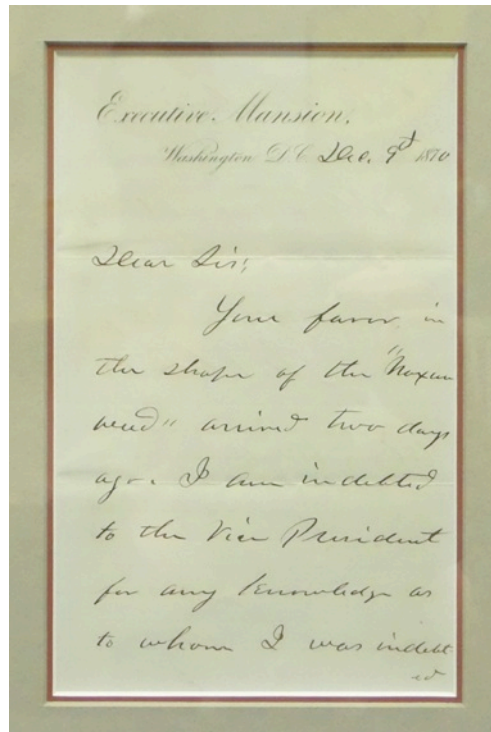 Executive Mansion,
Washington D.C. Dec. 9th 1870
Dear Sir;
Your favor in
the shape of the "Noxious
weed" arrived two days
ago. I am indebted
to the Vice President
for any knowledge as
to whom I was indebt
ed